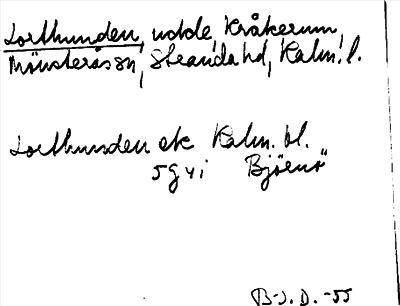 Lorthunden, udde, Kråkerum,
Mönsterås sn, Stranda hd, Kalm. l.
Lorthunden ek Kalm. bl.
5g4i Björnö
B-J. D. -55